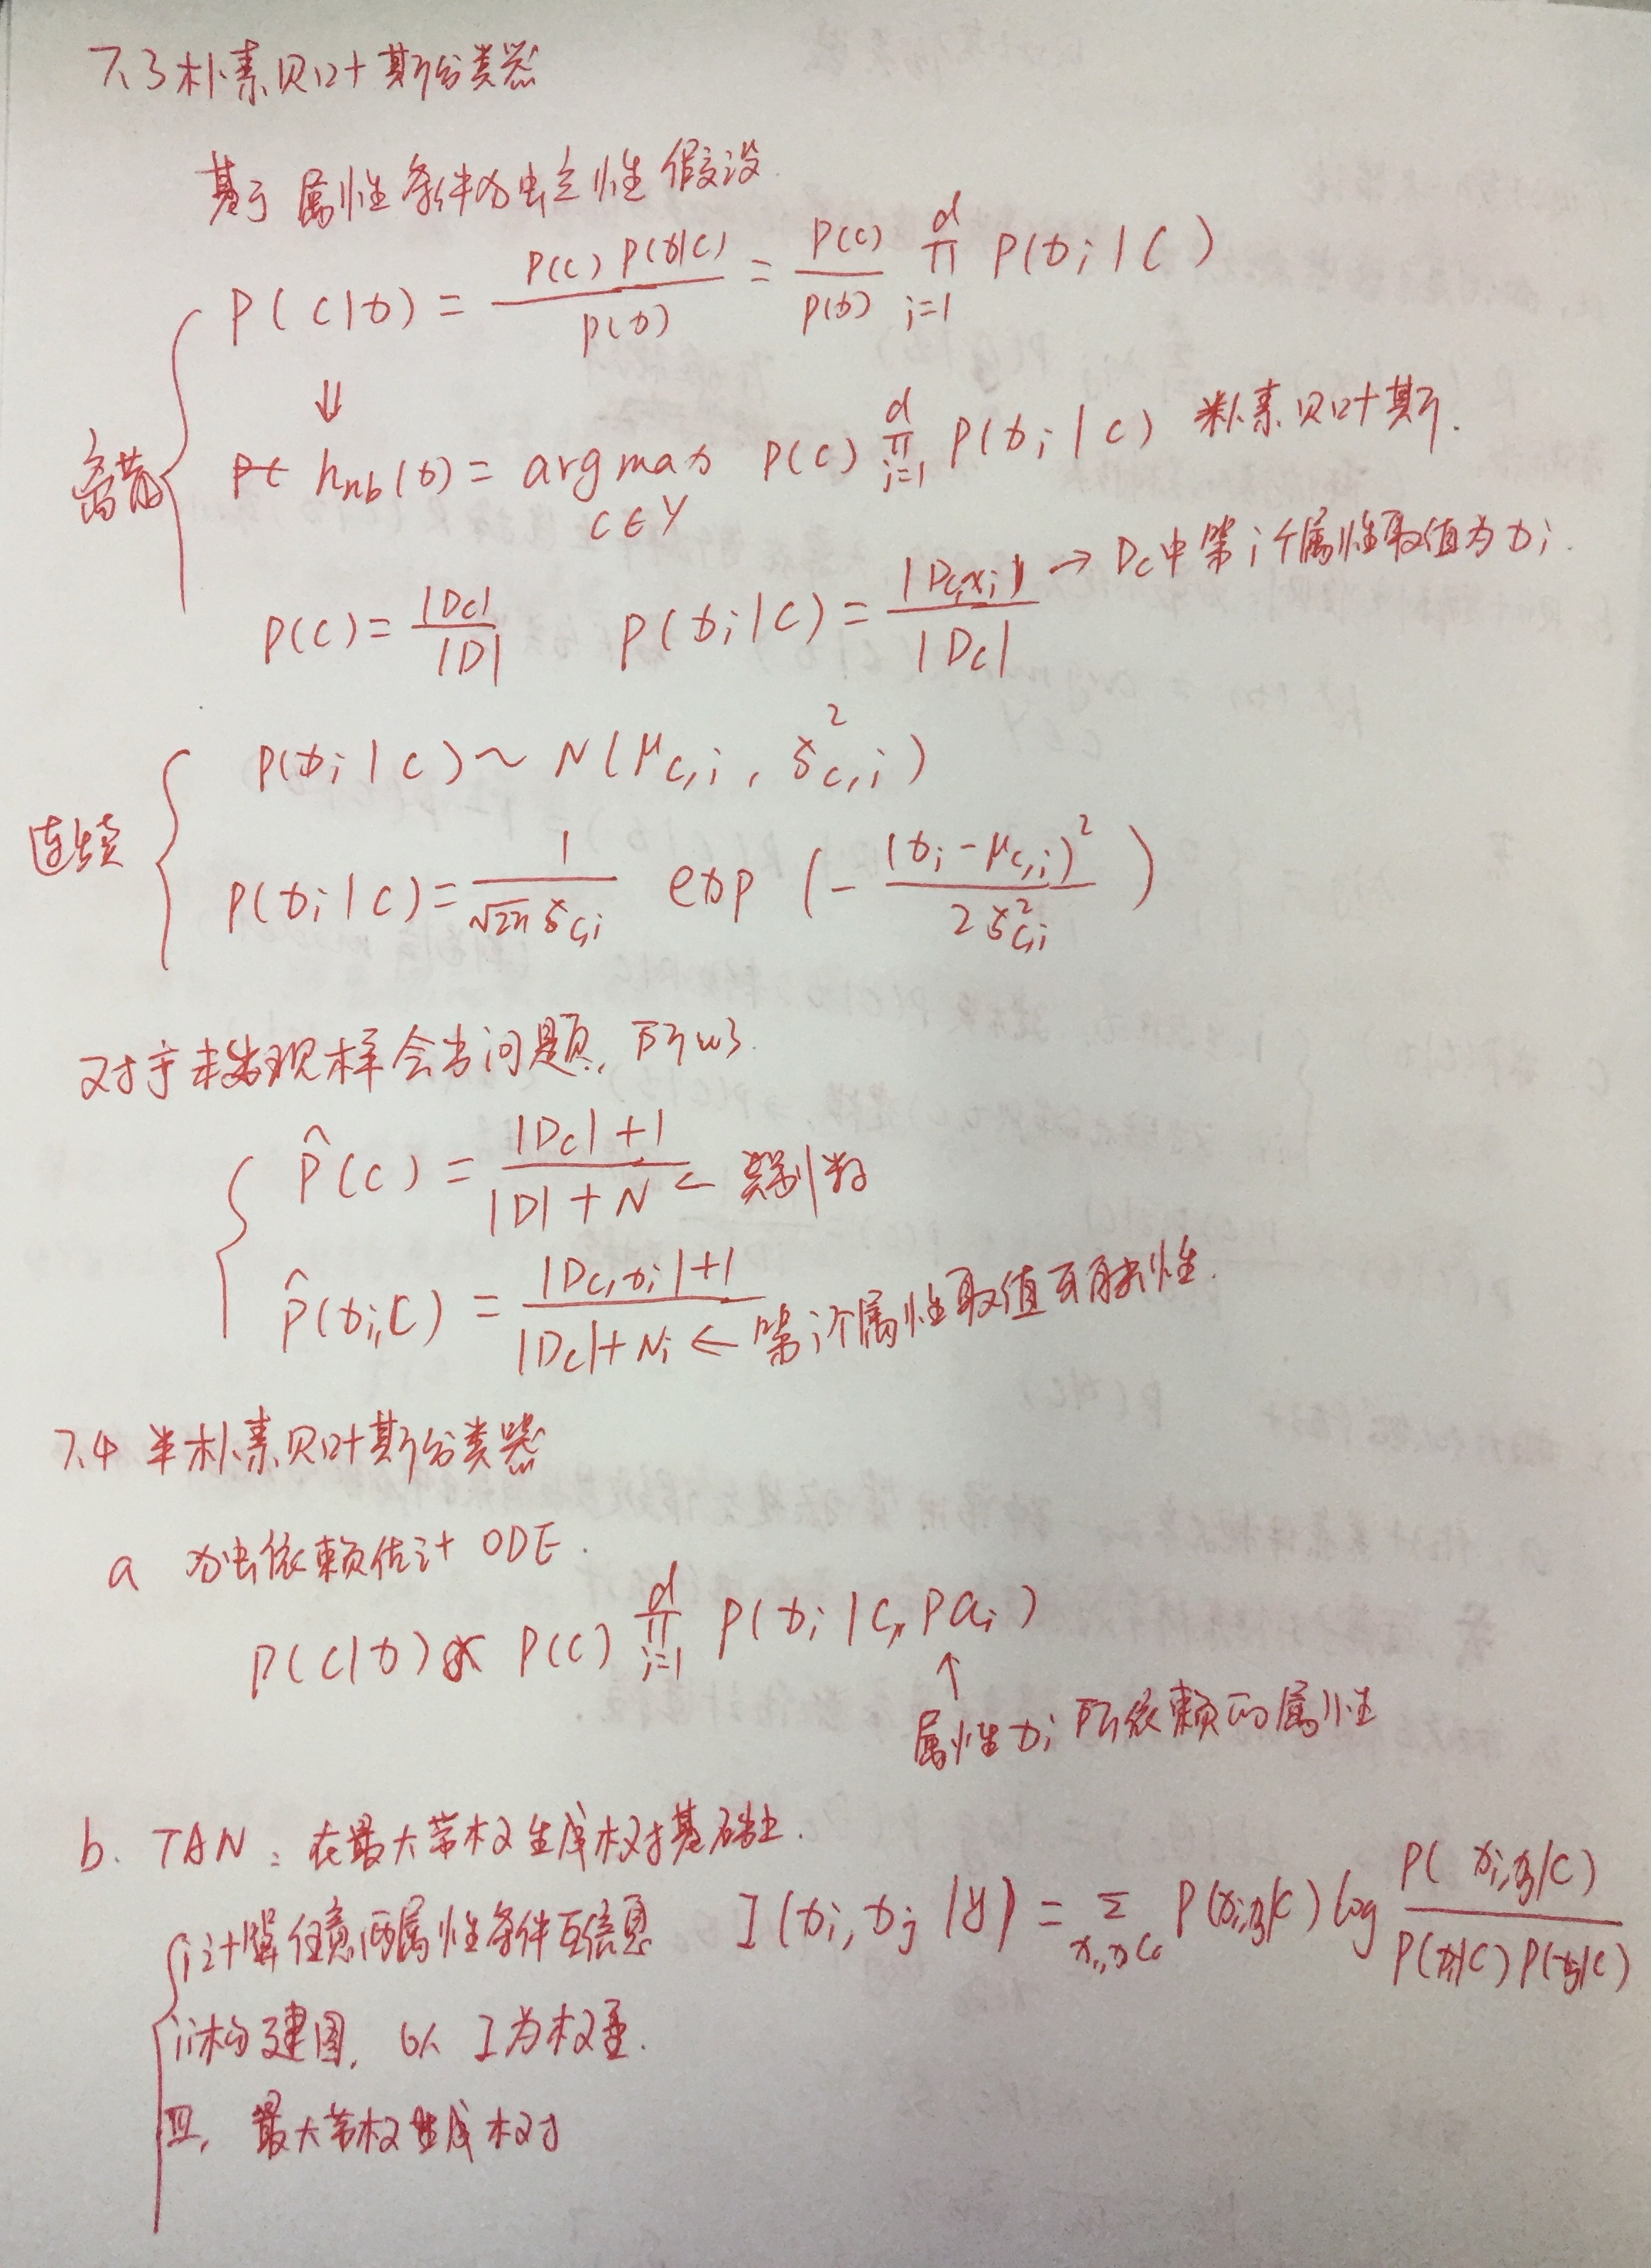 7.3 朴素贝叶斯分类器
基于属性条件独立性假设
P(c|x) = P(c) P(x|c) / P(x) = P(c) / P(x) ∏_{i=1}^{d} P(x_i | c)
⇓
离散
h_{nb}(x) = argmax_{c∈Y} P(c) ∏_{i=1}^{d} P(x_i | c) 朴素贝叶斯.
P(c) = |D_c| / |D| P(x_i | c) = |D_{c,x_i}| / |D_c| → D_c中第i个属性取值为x_i.
P(x_i | c) ~ N(μ_{c,i}, δ²_{c,i})
连续
P(x_i | c) = 1 / (√2π δ_{c,i}) exp(- (x_i - μ_{c,i})² / 2δ²_{c,i})
对于未发现样会出问题, 所以
P̂(c) = (|D_c| + 1) / (|D| + N) ← 类别数
P̂(x_i, c) = (|D_{c,x_i}| + 1) / (|D_c| + N_i) ← 第i个属性取值可能性.
7.4 半朴素贝叶斯分类器
a 独依赖估计 ODE.
P(c|x) ∝ P(c) ∏_{i=1}^{d} P(x_i | c, pa_i)
↑
属性x_i所依赖的属性
b. TAN: 在最大带权生成树基础上.
i 计算任意两属性条件互信息 I(x_i, x_j | y) = Σ P(x_i, x_j|c) log P(x_i, x_j|c) / P(x_i|c) P(x_j|c)
ii 构建图, 以 I 为权重.
III, 最大带权生成树